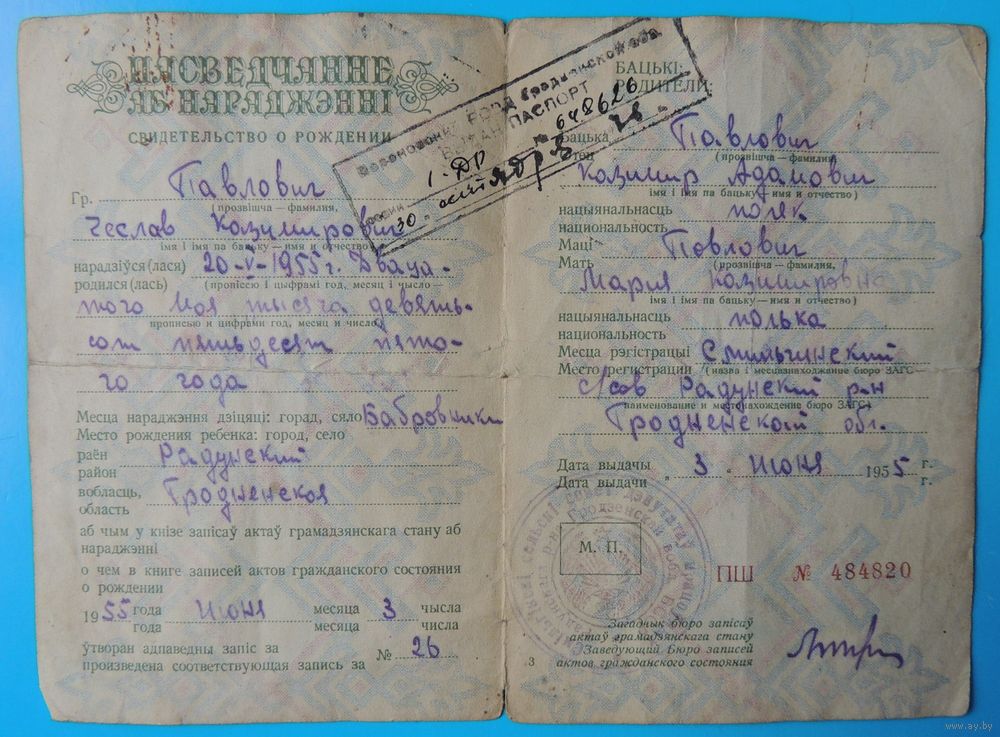 НАСВЕДЧАННЕ
АБ НАРАДЖЭННІ
СВИДЕТЕЛЬСТВО О РОЖДЕНИИ
Гр. Павлович
(прозвішча — фамилия,
Чеслав Казимирович
імя і імя па бацьку — имя и отчество)
нарадзіўся(лася) 20-V-1955 г. Двадца-
родился(лась) (прописею і цыфрамі год, месяц і число —
того мая тысяча девять-
прописью и цифрами год, месяц и число)
сот пятьдесят пято-
го года
Месца нараджэння дзіцяці: горад, сяло Бабровники
Место рождения ребенка: город, село
раён Радунский
район
вобласць, Гродненская
область
аб чым у кнізе запісаў актаў грамадзянскага стану аб
нараджэнні
о чем в книге записей актов гражданского состояния
о рождении
1955 года июня месяца 3 чысла
года месяца числа
ўтворан адпаведны запіс за № 26
произведена соответствующая запись за
РОВД Гродненской обл
ВЫДАН ПАСПОРТ
№ 648626
30
БАЦЬКІ:
РОДИТЕЛИ:
Бацька Павлович
Отец (прозвішча — фамилия)
Казимир Адамович
імя і імя па бацьку — имя и отчество)
нацыянальнасць поляк
национальность
Маці Павлович
Мать (прозвішча — фамилия,
Мария Казимировна
імя і імя па бацьку — имя и отчество)
нацыянальнасць полька
национальность
Месца рэгістрацыі Смильгинский
Место регистрации (назва і месцазнаходжанне бюро ЗАГС —
с/сов Радунский р-н
наименование и местонахождение бюро ЗАГС)
Гродненской обл.
Дата выдачы 3 июня 1955 г.
Дата выдачи г.
М. П.
ПШ № 484820
Загадчык бюро запісаў
актаў грамадзянскага стану
Заведующий Бюро записей
актов гражданского состояния
3
www.ay.by